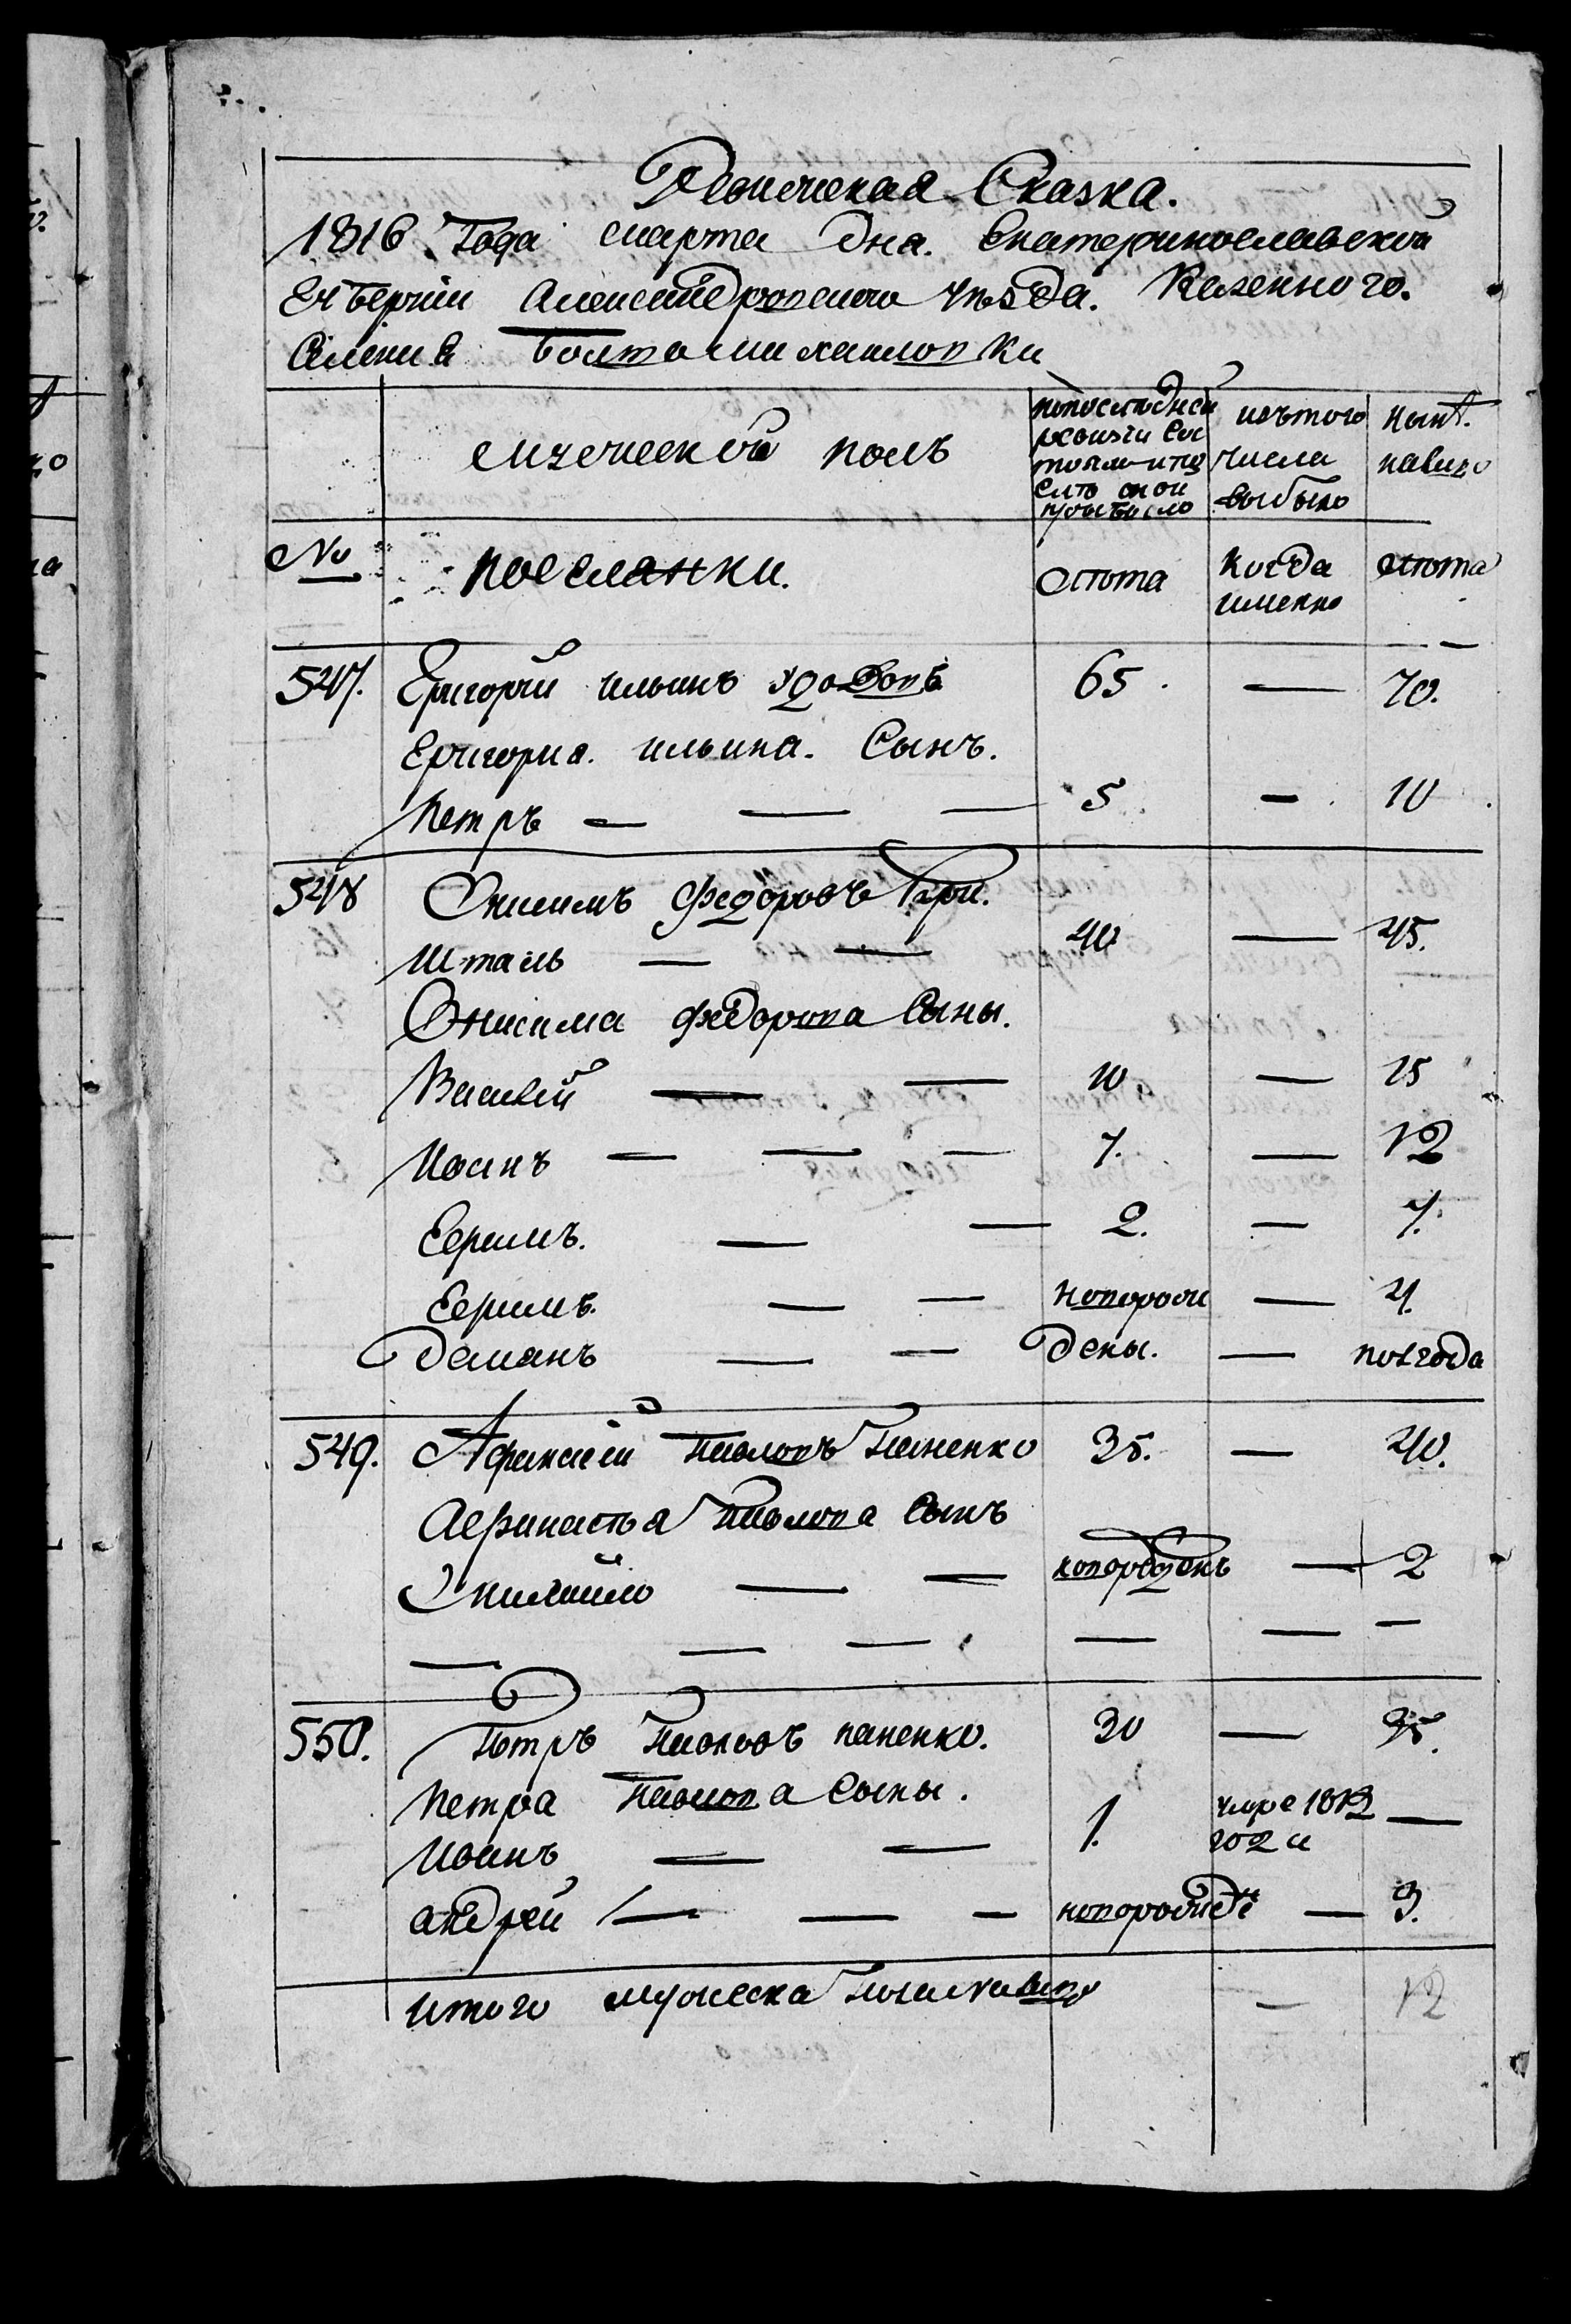 Ревижская Сказка.
1816 Года марта дна. Екатеринославской
Губернїи Александровского уезда. Казенного.
Селения Болтомихаиловки
мужеской полъ
попоследней ревизїи сос тояло ипо слѣ оной прибыло
изътого числа выбыло
нынѣ. налицо
№
поселянки.
Олѣта
Когда именно
олѣта
547. Григорїй ильинъ удодовъ 65 — 70.
Григориа. ильина. Сынъ.
Петръ — — — 5 — 10
548 Онисимъ Федоровъ Гри.
Шталь — — 40 — 45.
Онисима федорова Сыны.
Василїй — — 10 — 15
Иванъ — — — 7. — 12
Ефимъ. — — 2. — 7.
Ефимъ. — — новорож — 4.
Демянъ — — дены. — полгода
549. Афанасїй Павловъ Паненко 35. — 40.
Афанасья Павлова Сынъ
Михайло — — новорожденъ — 2
— — — — — —
550. Петръ Павловъ паненко. 30 — 35.
Петра Павлова Сыны.
Иванъ — — 1. умре 1812 года —
андрей — — — новорожде — 3.
итого мужеска пола налицо — 12